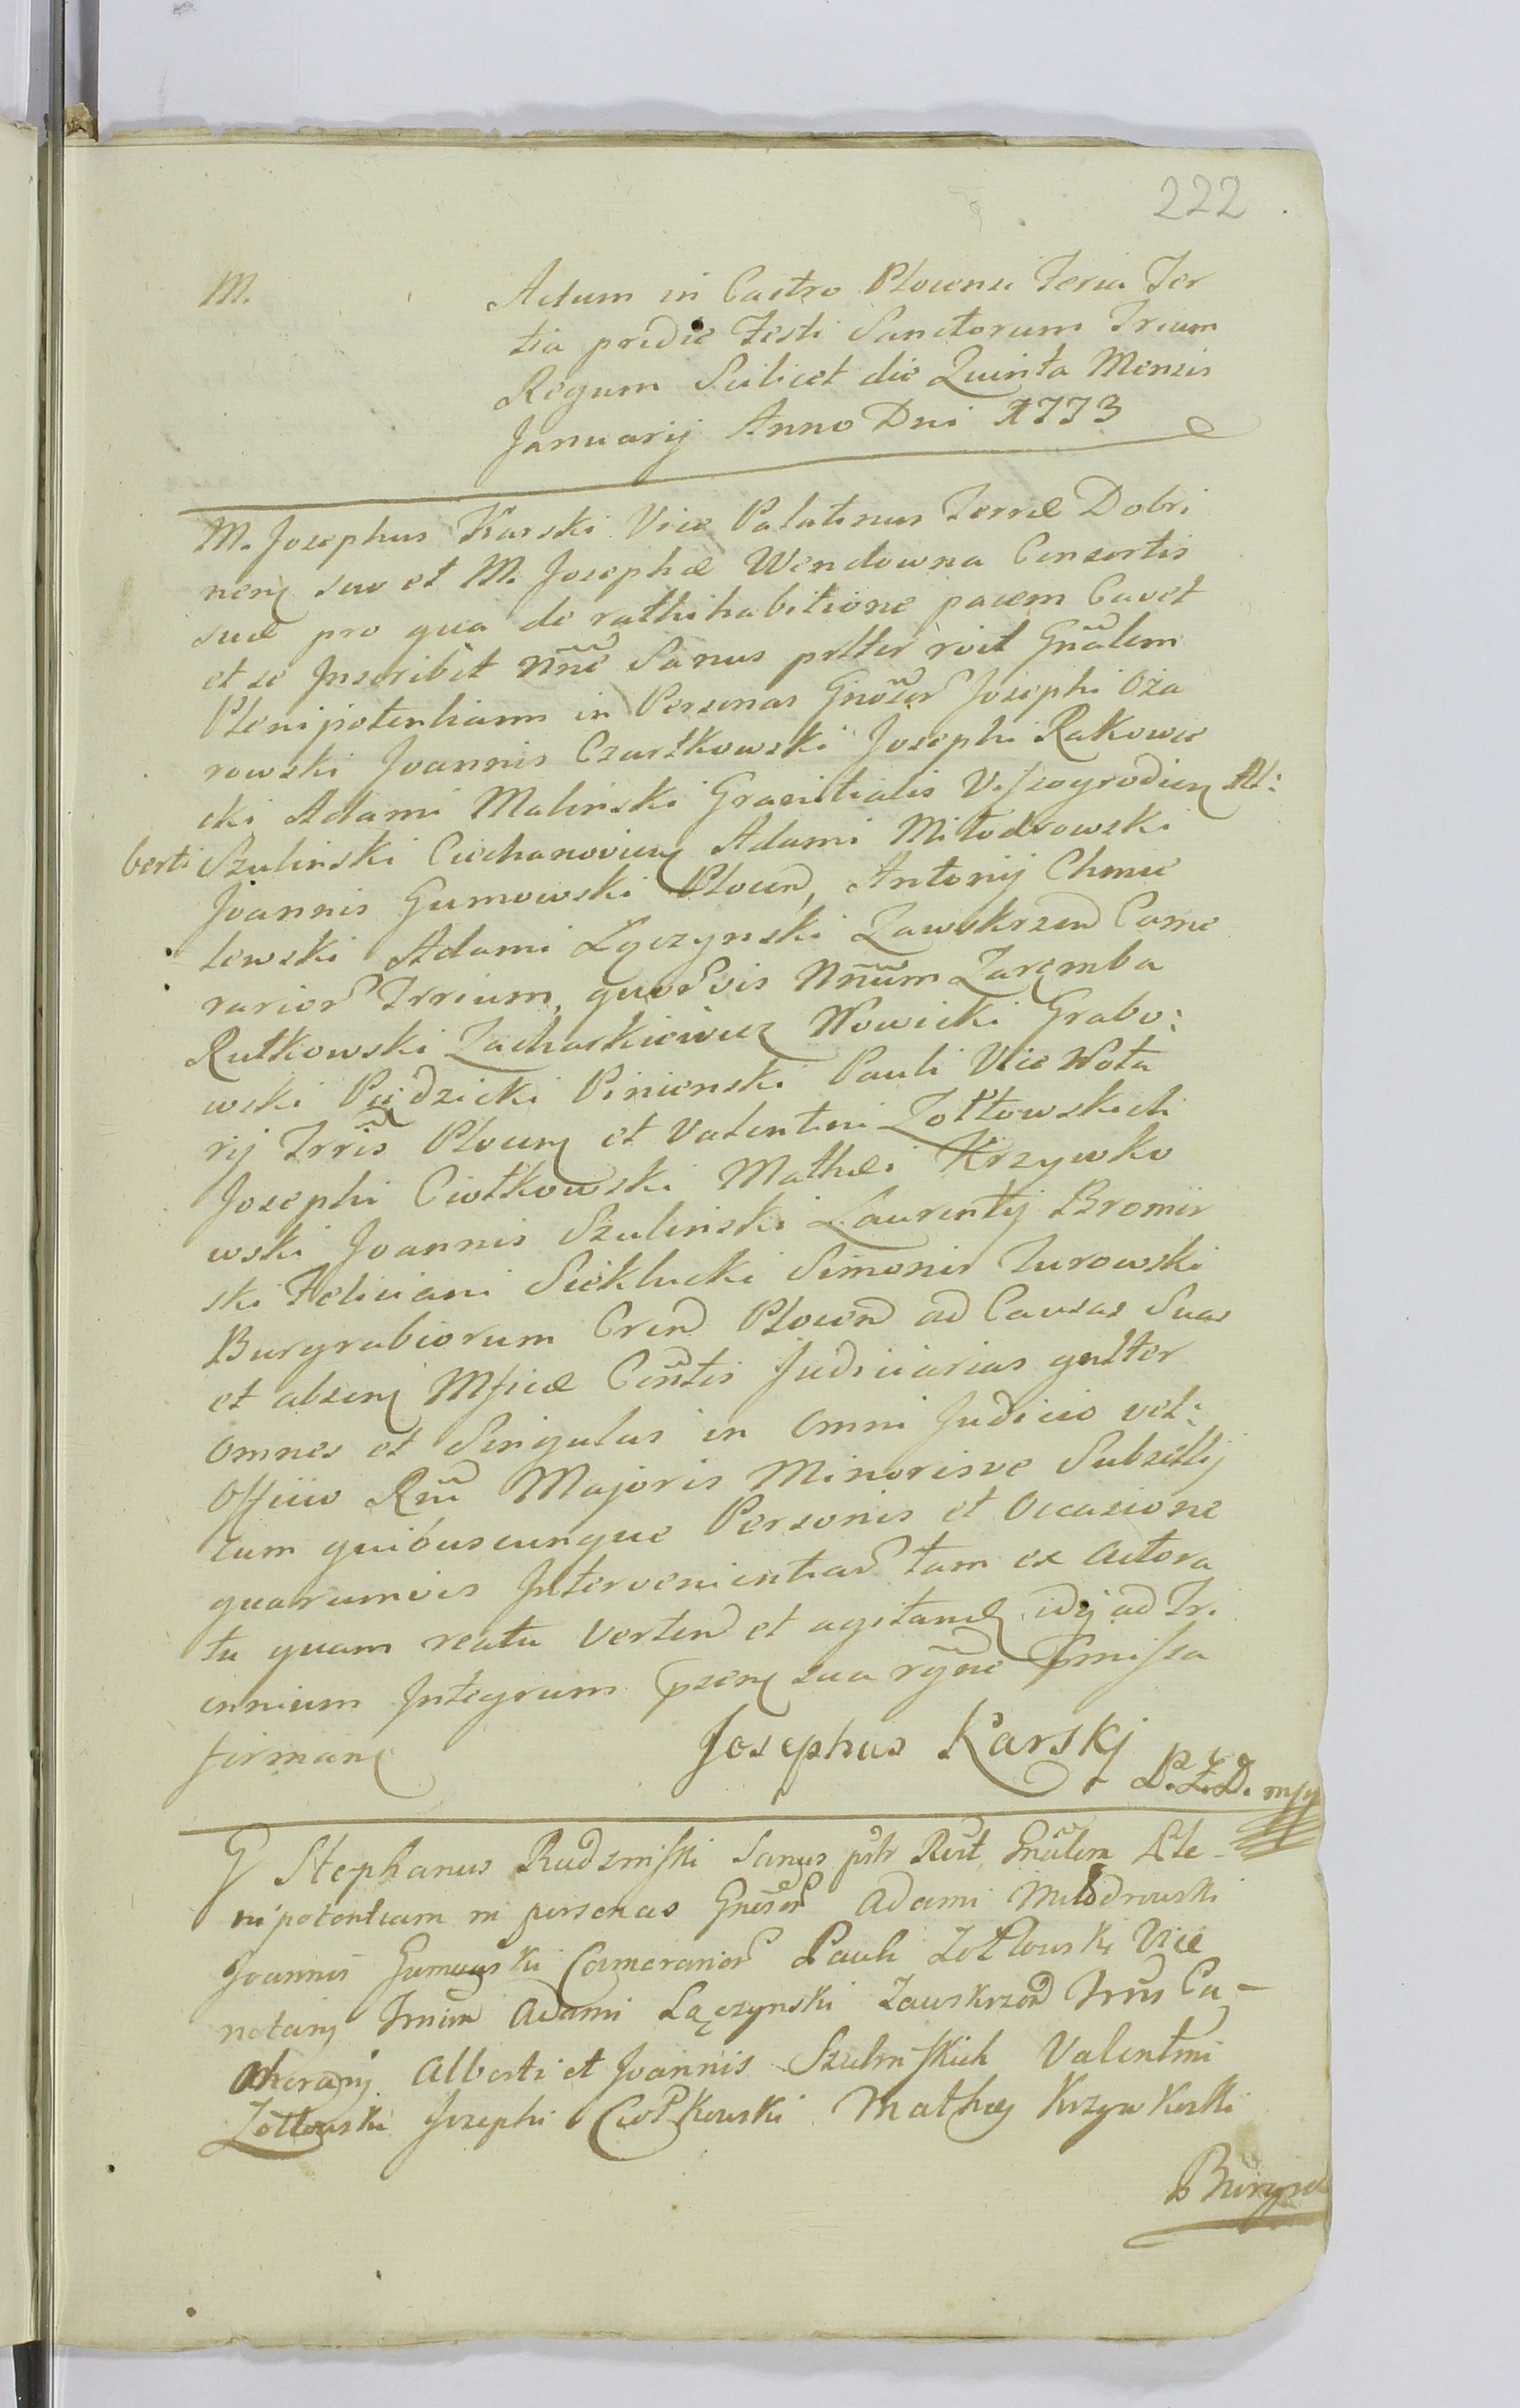 222
M. Actum in Castro Plocensi Feria Ter
tia pridie Festi Sanctorum Trium
Regum Scilicet die Quinta Mensis
Januarij Anno Dni 1773
M. Josephus Karski Vice Palatinus Terræ Dobri
nen suo et M. Josephæ Wendowna Consortis
suæ pro qua de rathihabitione pacem Cavet
et se Inscribit Nñe Sanus prltter roit Gñalem
Plenipotentiam in Personas Gñosor Josephi Oża
rowski Joannis Czartkowski Josephi Rakowie
cki Adami Malinski Granitialis Viszogrodien Al:
berti Szulinski Ciechanovien Adami Miłodrowski
Joannis Gumowski Plocen, Antonij Chmie
lewski Adami Łączynski Zawskrzen Came
rarior Trrium, quorvis Nñum Zaręmba
Rutkowski Zacharkiewicz Nowicki Grabo:
wski Pią̃dzicki Pinienski Pauli Vice Nota
rij Trris Plocen et Valentini Żołtowskich
Josephi Ciołkowski Mathæi Krzywko
wski Joannis Szulinski Laurentij Bromir
ski Feliciani Sieklucki Simonis Turowski
Burgrabiorum Cren Plocen ad Causas Suas
et absen Mficæ Cõntis Judiciarias gnlter
Omnes et Singulas in Omni Judicio vel:
Officio Rñi Majoris Minorisve Subsellij
cum quibuscunque Personis et Occasione
quarumvis Intervenientiar tam ex Actora
tu quam reatu Verten et agitan idq ad Tri
ennium Integrum pzen sua rgne Pmissa
firman Josephus Karskj
P. Z. D. mp
G Stephanus Rudzinski Sanus pstr Rcit Gñalem Ple
nipotentiam in personas Gnosor Adami Miłodrowski
Joannis Gumowski Camerarior Pauli Zołtowski Vice
notarij Trrium Adami Łączynski Zawskrzen Trris Ca-
merarij Alberti et Joannis Szulinskich Valentini
Żołtowski Josephi Ciołkowski Mathæj Krzywkoski
Burgra